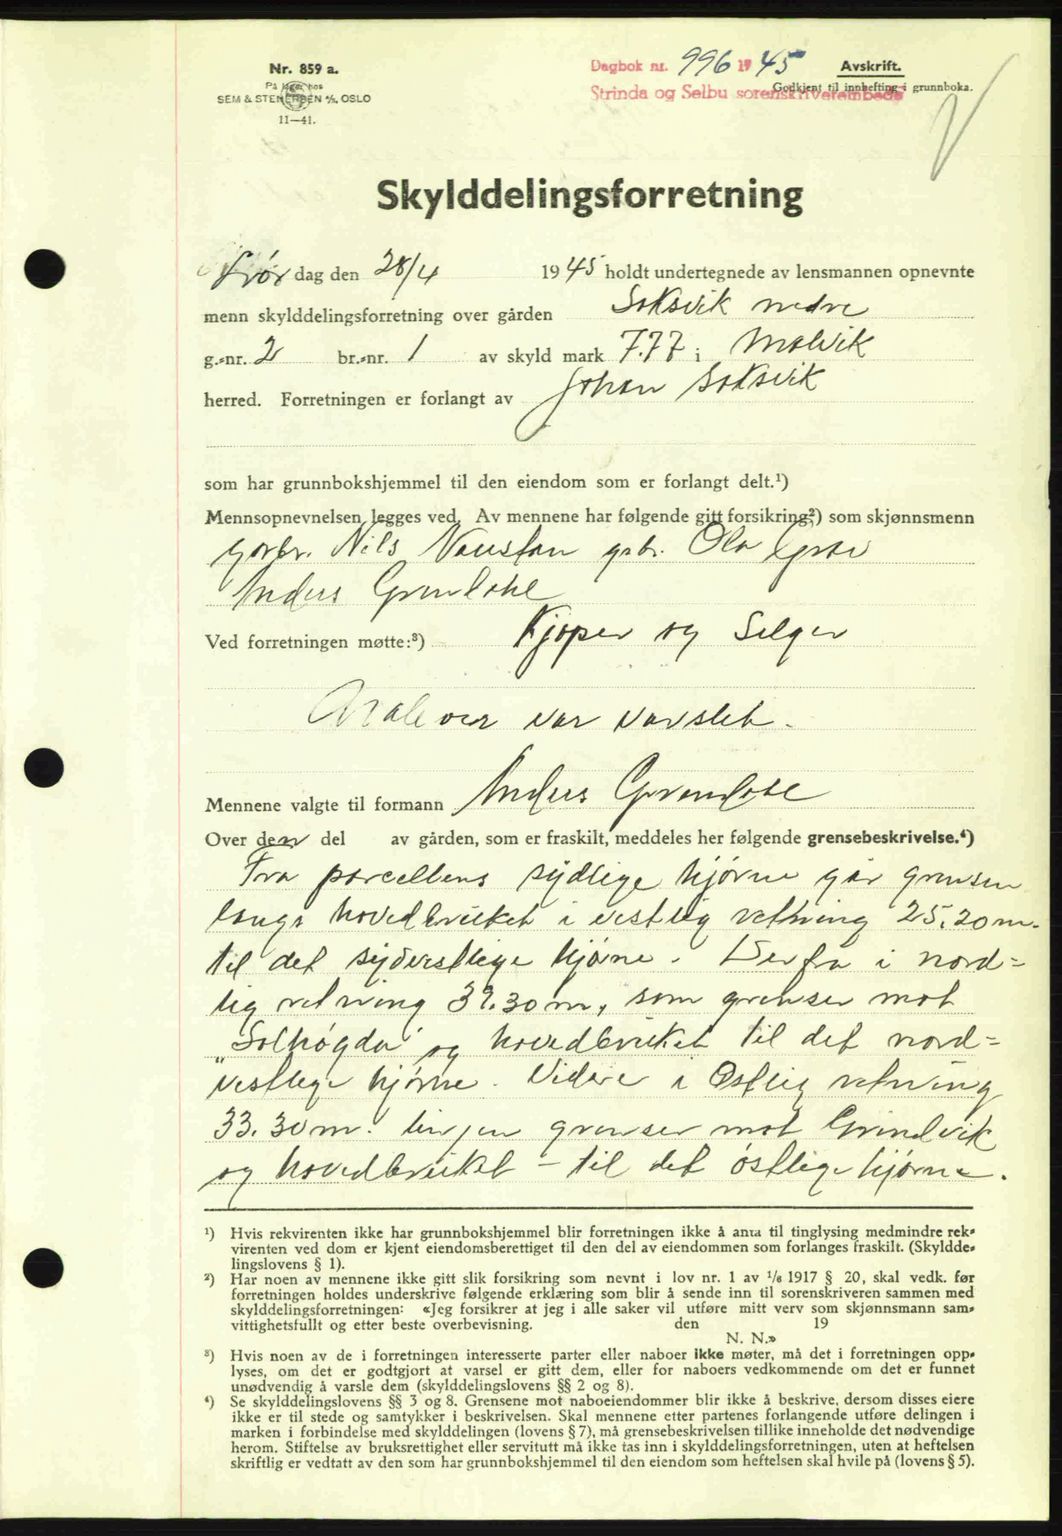 Nr. 859 a.
På lager hos
SEM & STENERSEN A/S, OSLO
11—41.
Dagbok nr. 996 1945
Strinda og Selbu sorenskriverembede
Avskrift.
Godkjent til innhefting i grunnboka.
Skylddelingsforretning
Lør dag den 28/4 1945 holdt undertegnede av lensmannen opnevnte
menn skylddelingsforretning over gården Saksvik nedre
g.-nr. 2 br.-nr. 1 av skyld mark 7.77 i Malvik
herred. Forretningen er forlangt av Johan Saksvik
som har grunnbokshjemmel til den eiendom som er forlangt delt.¹)
Mennsopnevnelsen legges ved. Av mennene har følgende gitt forsikring²) som skjønnsmenn
gårbr. Nils Naustan grbr. Ola
Anders
Ved forretningen møtte:³) Kjøper og Selger
Naboer var varslet.
Mennene valgte til formann Anders
Over den del av gården, som er fraskilt, meddeles her følgende grensebeskrivelse.⁴)
Fra parcellens sydlige hjørne går grensen
langs hovedbruket i vestlig retning 25.20 m.
til det sydvestlige hjørne. Derfra i nord-
lig retning 39.30 m, som grenser mot
„Solhøgda" og hovedbruket til det nord-
vestlige hjørne. Videre i Østlig retning
33.30 m. linjen grenser mot Grindvik
og hovedbruket — til det østlige hjørne.
¹) Hvis rekvirenten ikke har grunnbokshjemmel blir forretningen ikke å anta til tinglysing medmindre rek-
virenten ved dom er kjent eiendomsberettiget til den del av eiendommen som forlanges fraskilt. (Skyldde-
lingslovens § 1).
²) Har noen av mennene ikke gitt slik forsikring som nevnt i lov nr. 1 av 1/6 1917 § 20, skal vedk. før
forretningen holdes underskrive følgende erklæring som blir å sende inn til sorenskriveren sammen med
skylddelingsforretningen: «Jeg forsikrer at jeg i alle saker vil utføre mitt verv som skjønnsmann sam-
vittighetsfullt og etter beste overbevisning. den 19
N. N.»
³) Hvis noen av de i forretningen interesserte parter eller naboer ikke møter, må det i forretningen opp-
lyses, om det er godtgjort at varsel er gitt dem, eller for naboers vedkommende om det er funnet
unødvendig å varsle dem (skylddelingslovens §§ 2 og 8).
⁴) Se skylddelingslovens §§ 3 og 8. Grensene mot naboeiendommer blir ikke å beskrive, dersom disses eiere
ikke er til stede og samtykker i beskrivelsen. Skal mennene etter partenes forlangende utføre delingen i
marken i forbindelse med skylddelingen (lovens § 7), må grensebeskrivelsen tillike inneholde det nødvendige
herom. Stiftelse av bruksrettighet eller servitutt må ikke tas inn i skylddelingsforretningen, uten at heftelsen
skriftlig er vedtatt av den som har grunnbokshjemmel til den eiendom som heftelsen skal hvile på (lovens § 5).